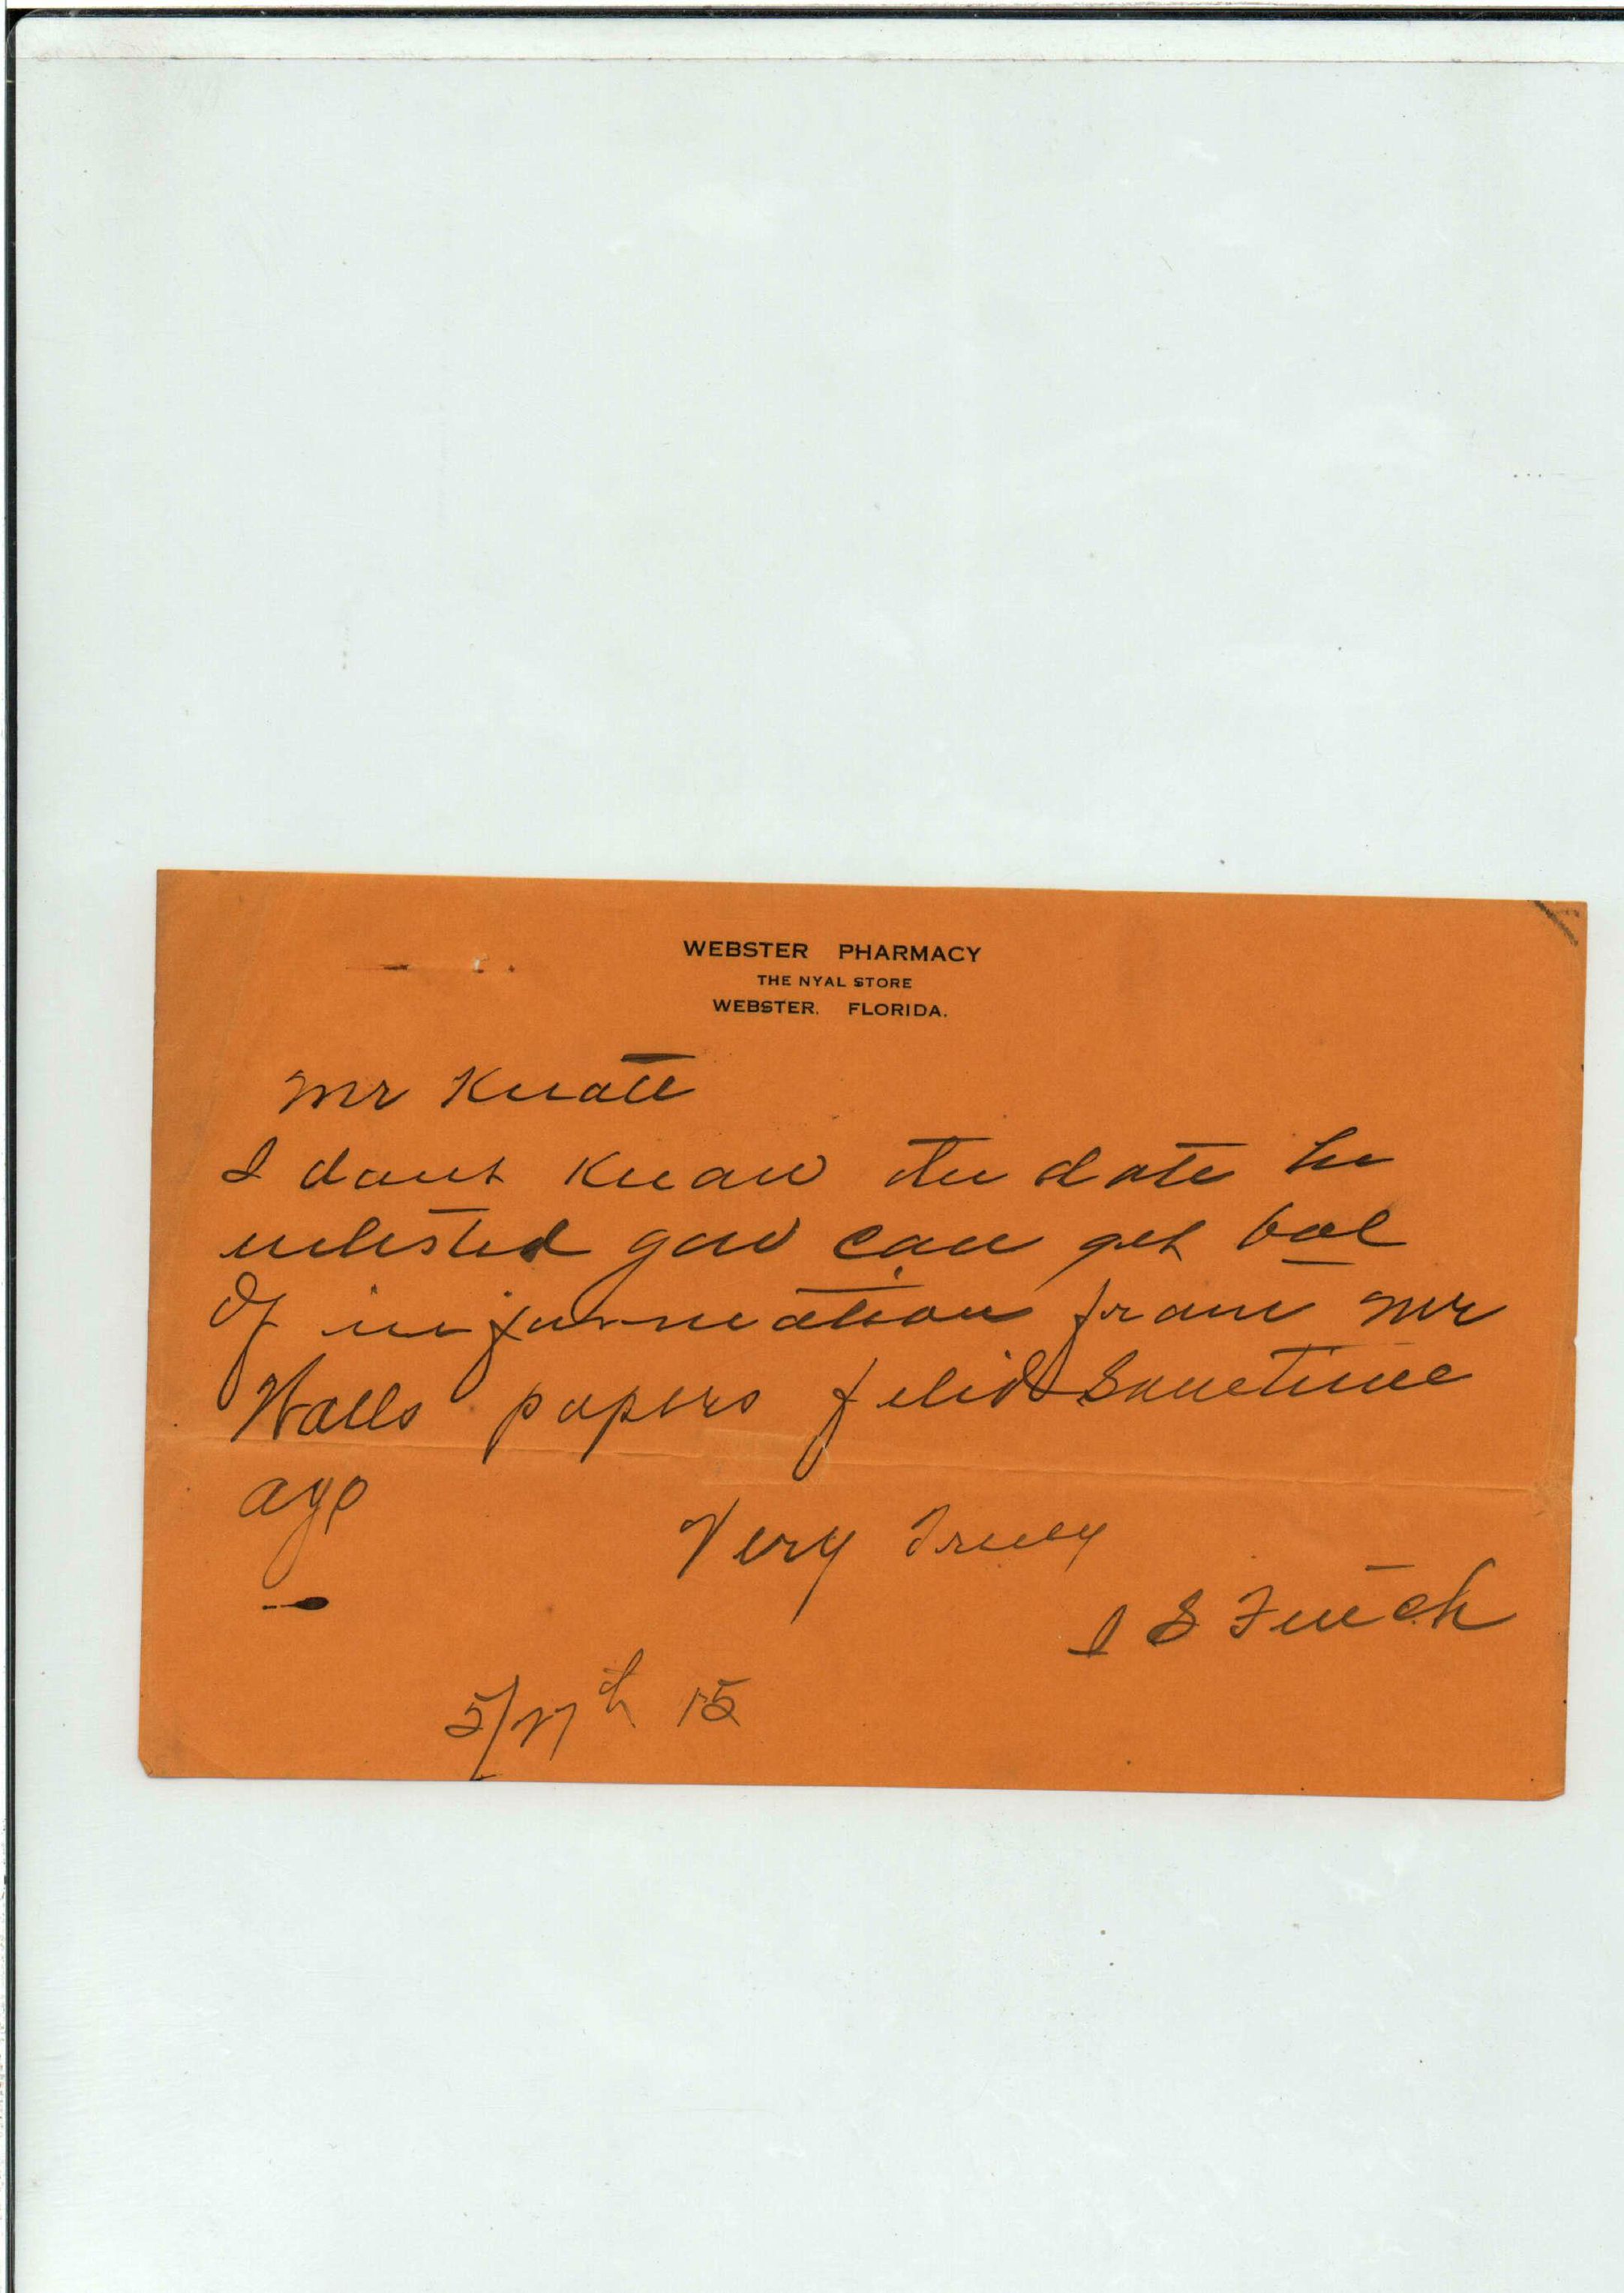 WEBSTER PHARMACY
THE NYAL STORE
WEBSTER. FLORIDA.
Mr Knott
I dont Know the date he
inlisted you can get bal
Of information from Mr
Walls papers filid Sometime
ago
Very Truly
I S Finch
5/27th 15